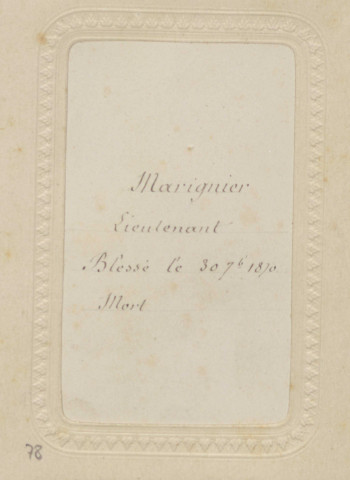 Marignier
Lieutenant
Blessé le 30 7b 1870.
Mort
78